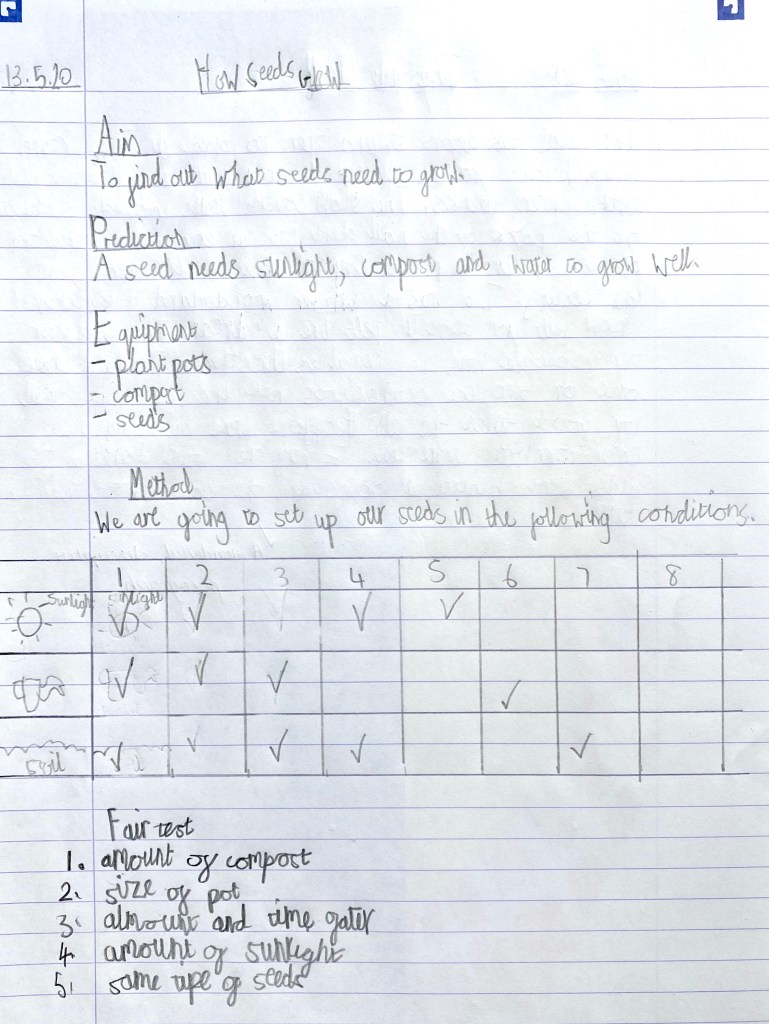 13.5.20
How seeds grow
Aim
To find out what seeds need to grow.
Prediction
A seed needs sunlight, compost and water to grow well.
Equipment
- plant pots
- compost
- seeds
Method
We are going to set up our seeds in the following conditions.
1 2 3 4 5 6 7 8
Sunlight ✓ ✓ ✓ ✓
✓ ✓ ✓ ✓
soil ✓ ✓ ✓ ✓ ✓
Fair test
1. amount of compost
2. size of pot
3. almount and time gater
4. amount of sunlight
5. same tipe of seeds